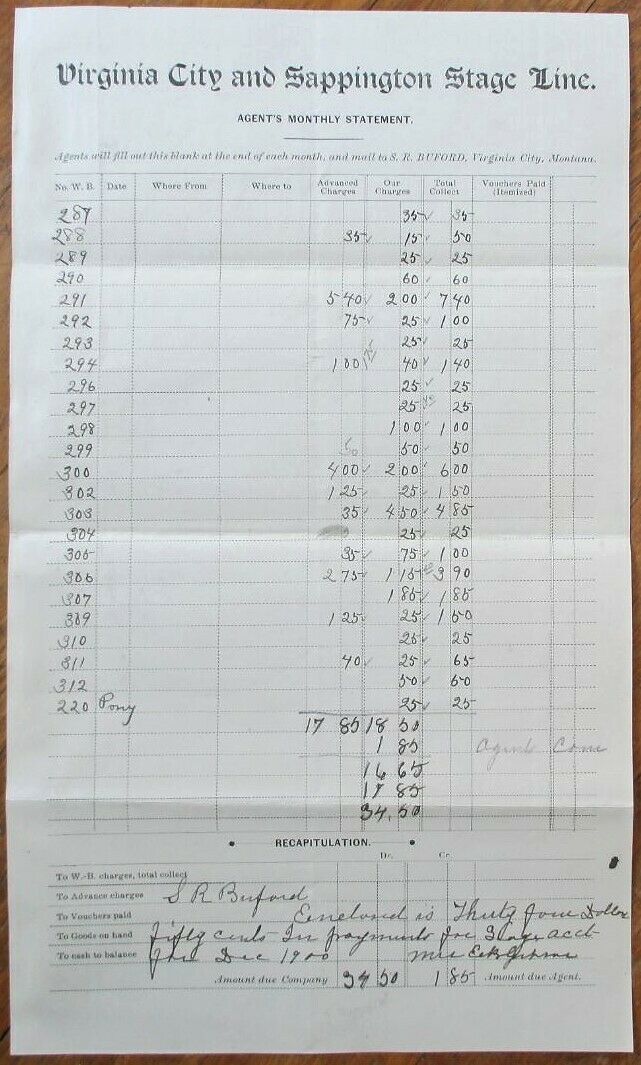 Virginia City and Sappington Stage Line.
AGENT'S MONTHLY STATEMENT.
Agents will fill out this blank at the end of each month, and mail to S. R. BUFORD, Virginia City, Montana.
No. W. B. Date Where From Where to Advanced Charges Our Charges Total Collect Vouchers Paid (Itemized)
287 35 35
288 35 15 50
289 25 25
290 60 60
291 5 40 2 00 7 40
292 75 25 1 00
293 25 25
294 1 00 40 1 40
296 25 25
297 25 25
298 1 00 1 00
299 50 50
300 4 00 2 00 6 00
302 1 25 25 1 50
303 35 4 50 4 85
304 25 25
305 35 75 1 00
306 2 75 1 15 3 90
307 1 85 1 85
309 1 25 25 1 50
310 25 25
311 40 25 65
312 50 50
220 Pony 25 25
17 85 18 50
1 85 Agent Com
16 65
17 85
34.50
RECAPITULATION.
Dr. Cr.
To W.-B. charges, total collect
To Advance charges S R Buford
To Vouchers paid Enclosed is Thirty four Dollars
To Goods on hand fifty cents In payments for Stage acct
To cash to balance for Dec 1900 Mrs
Amount due Company 34 50 1 85 Amount due Agent.